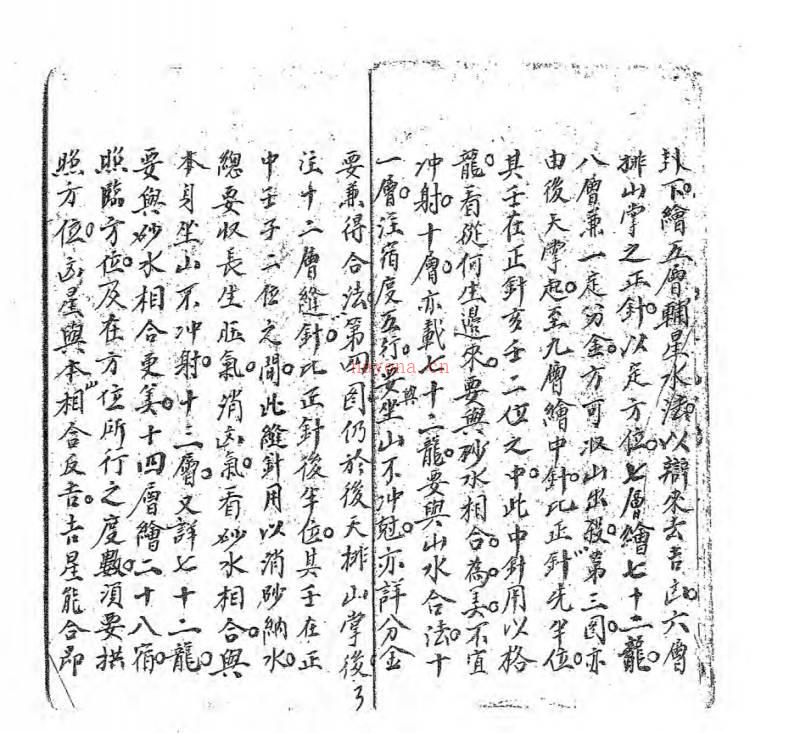 卦下。繪五層輔星水法。以辯來去吉凶。六層
排山掌之正針。以定方位。七層繪七十二龍。
八層兼一定分金。方可收山出殺。第三圖。亦
由後天掌起。至九層繪中針。比正針先半位。
其壬在正針亥壬二位之中。此中針用以格
龍。看從何生邊來。要與砂水相合。為美。不宜
冲射。十層亦載七十二龍。要與山水合法。十
一層。注宿度五行。要與坐山不冲尅。亦詳分金
要兼得合法。第四圖仍於後天排山掌後
注十二層縫針。比正針後半位。其壬在正
中壬子二位之間。此縫針用以消砂納水。
總要收長生旺氣。消凶氣。看砂水相合。與
本身坐山不冲射。十三層。又詳七十二龍。
要與砂水相合更美。十四層繪二十八宿。
照臨方位。及在方位所行之度數。須要拱
照方位。凶星與本山相合反吉。吉星能合即
3
havena.cn